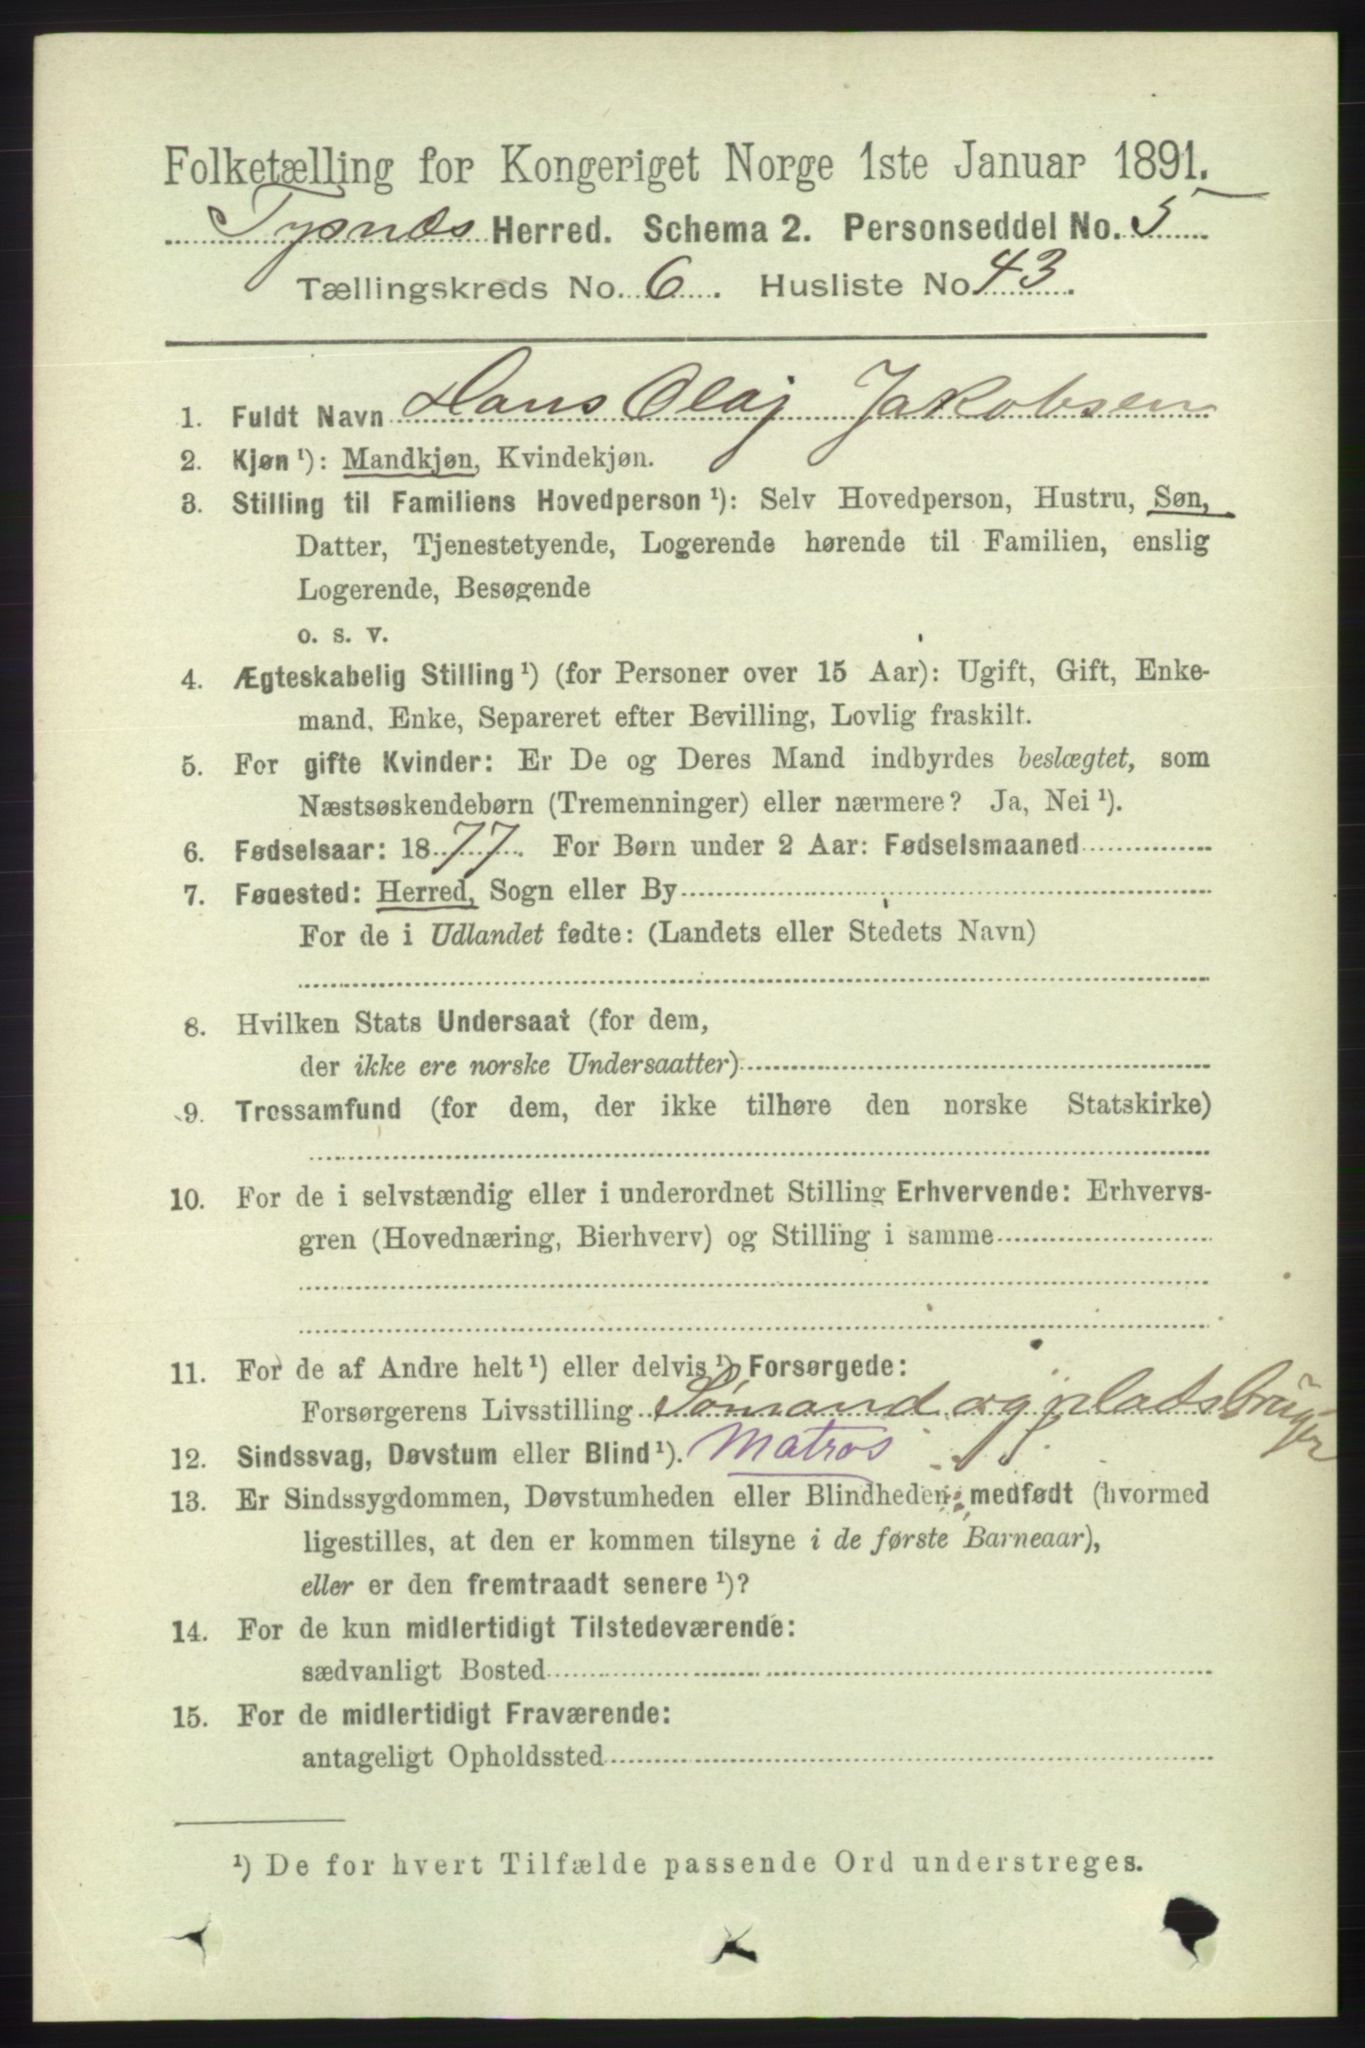 Folketælling for Kongeriget Norge 1ste Januar 1891.
Tysnes Herred. Schema 2. Personseddel No. 5
Tællingskreds No. 6. Husliste No 43.
1. Fuldt Navn Hans Olaj Jakobsen
2. Kjøn ¹): Mandkjøn, Kvindekjøn.
3. Stilling til Familiens Hovedperson ¹): Selv Hovedperson, Hustru, Søn,
Datter, Tjenestetyende, Logerende hørende til Familien, enslig
Logerende, Besøgende
o. s. v.
4. Ægteskabelig Stilling ¹) (for Personer over 15 Aar): Ugift, Gift, Enke-
mand, Enke, Separeret efter Bevilling, Lovlig fraskilt.
5. For gifte Kvinder: Er De og Deres Mand indbyrdes beslægtet, som
Næstsøskendebørn (Tremenninger) eller nærmere? Ja, Nei ¹).
6. Fødselsaar: 1877. For Børn under 2 Aar: Fødselsmaaned
7. Fødested: Herred, Sogn eller By
For de i Udlandet fødte: (Landets eller Stedets Navn)
8. Hvilken Stats Undersaat (for dem,
der ikke ere norske Undersaatter)
9. Trossamfund (for dem, der ikke tilhøre den norske Statskirke)
10. For de i selvstændig eller i underordnet Stilling Erhvervende: Erhvervs-
gren (Hovednæring, Bierhverv) og Stilling i samme
11. For de af Andre helt ¹) eller delvis ¹) Forsørgede:
Forsørgerens Livsstilling Sømand og pladsbruger
12. Sindssvag, Døvstum eller Blind ¹). Matros
13. Er Sindssygdommen, Døvstumheden eller Blindheden medfødt (hvormed
ligestilles, at den er kommen tilsyne i de første Barneaar),
eller er den fremtraadt senere ¹)?
14. For de kun midlertidigt Tilstedeværende:
sædvanligt Bosted
15. For de midlertidigt Fraværende:
antageligt Opholdssted
¹) De for hvert Tilfælde passende Ord understreges.